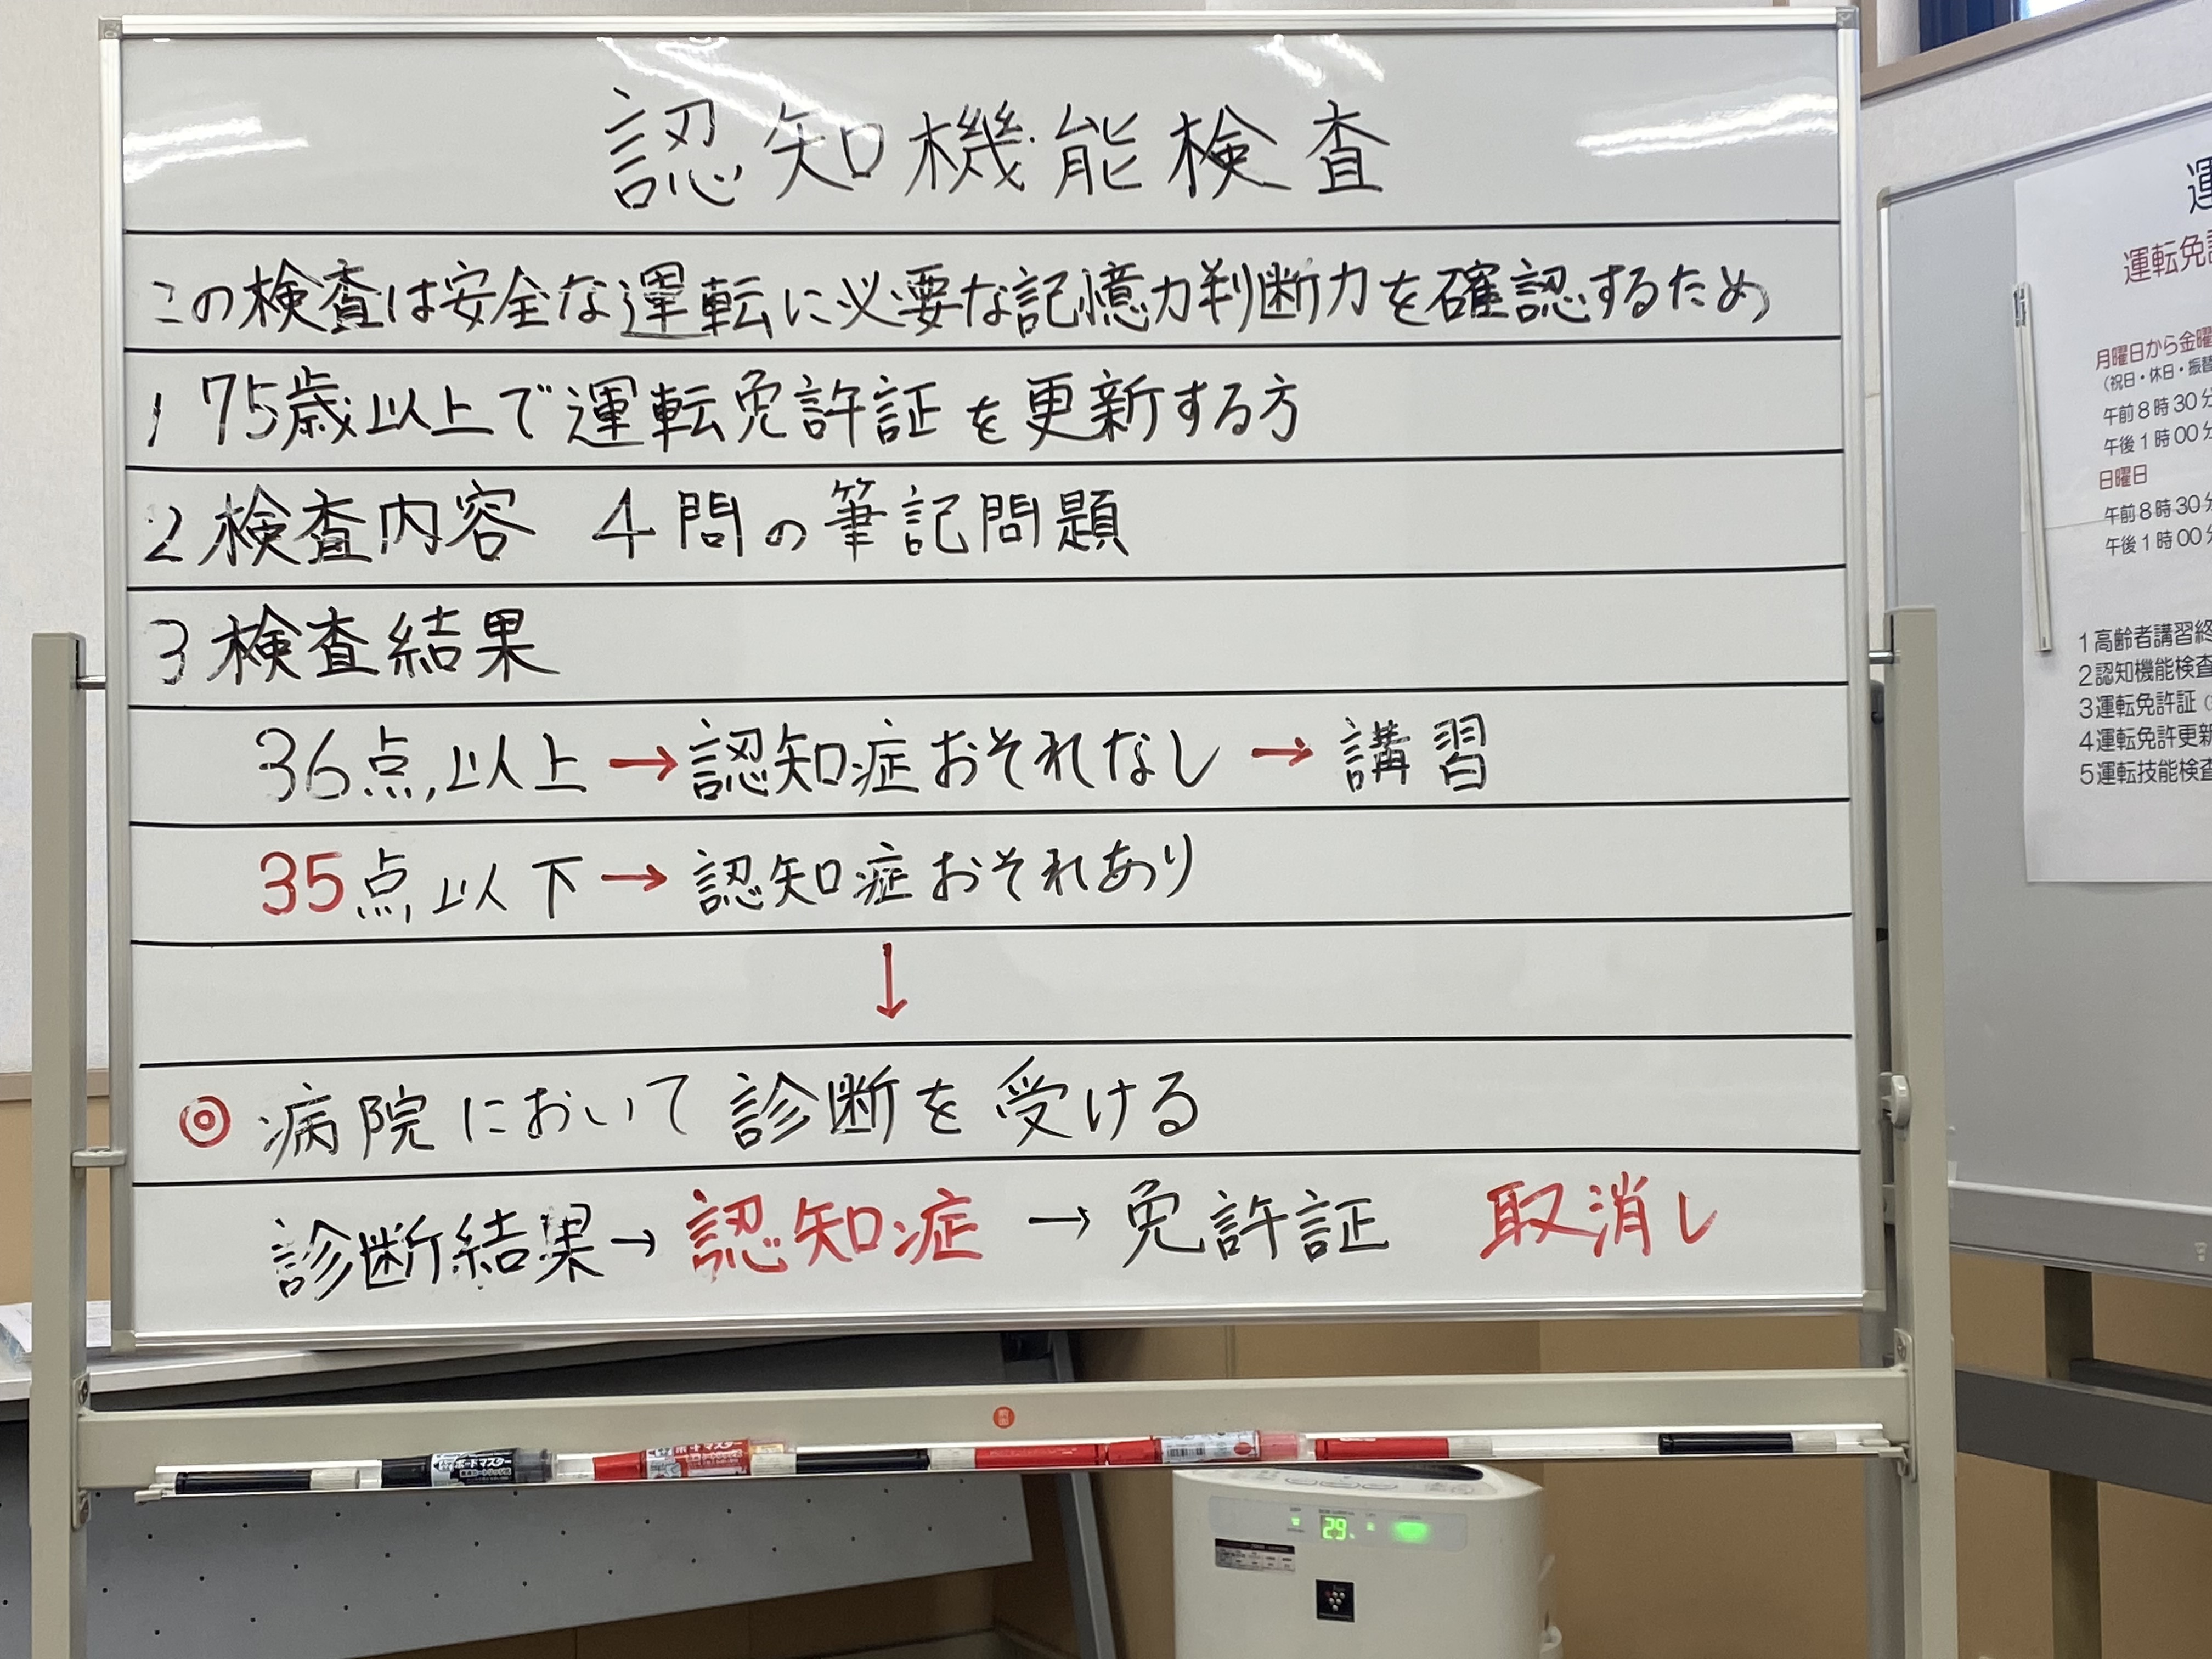 認知機能検査
この検査は安全な運転に必要な記憶力判断力を確認するため
1 75歳以上で運転免許証を更新する方
2 検査内容 4問の筆記問題
3 検査結果
36点以上→認知症おそれなし→講習
35点以下→認知症おそれあり
↓
◎病院において診断を受ける
診断結果→認知症→免許証 取消し
運
運転免
月曜日から金曜
(祝日・休日・振替
午前8時30分
午後1時00分
日曜日
午前8時30分
午後1時00分
1高齢者講習終
2認知機能検査
3運転免許証
4運転免許更新
5運転技能検査
ボードマスター
ボードマスター
29